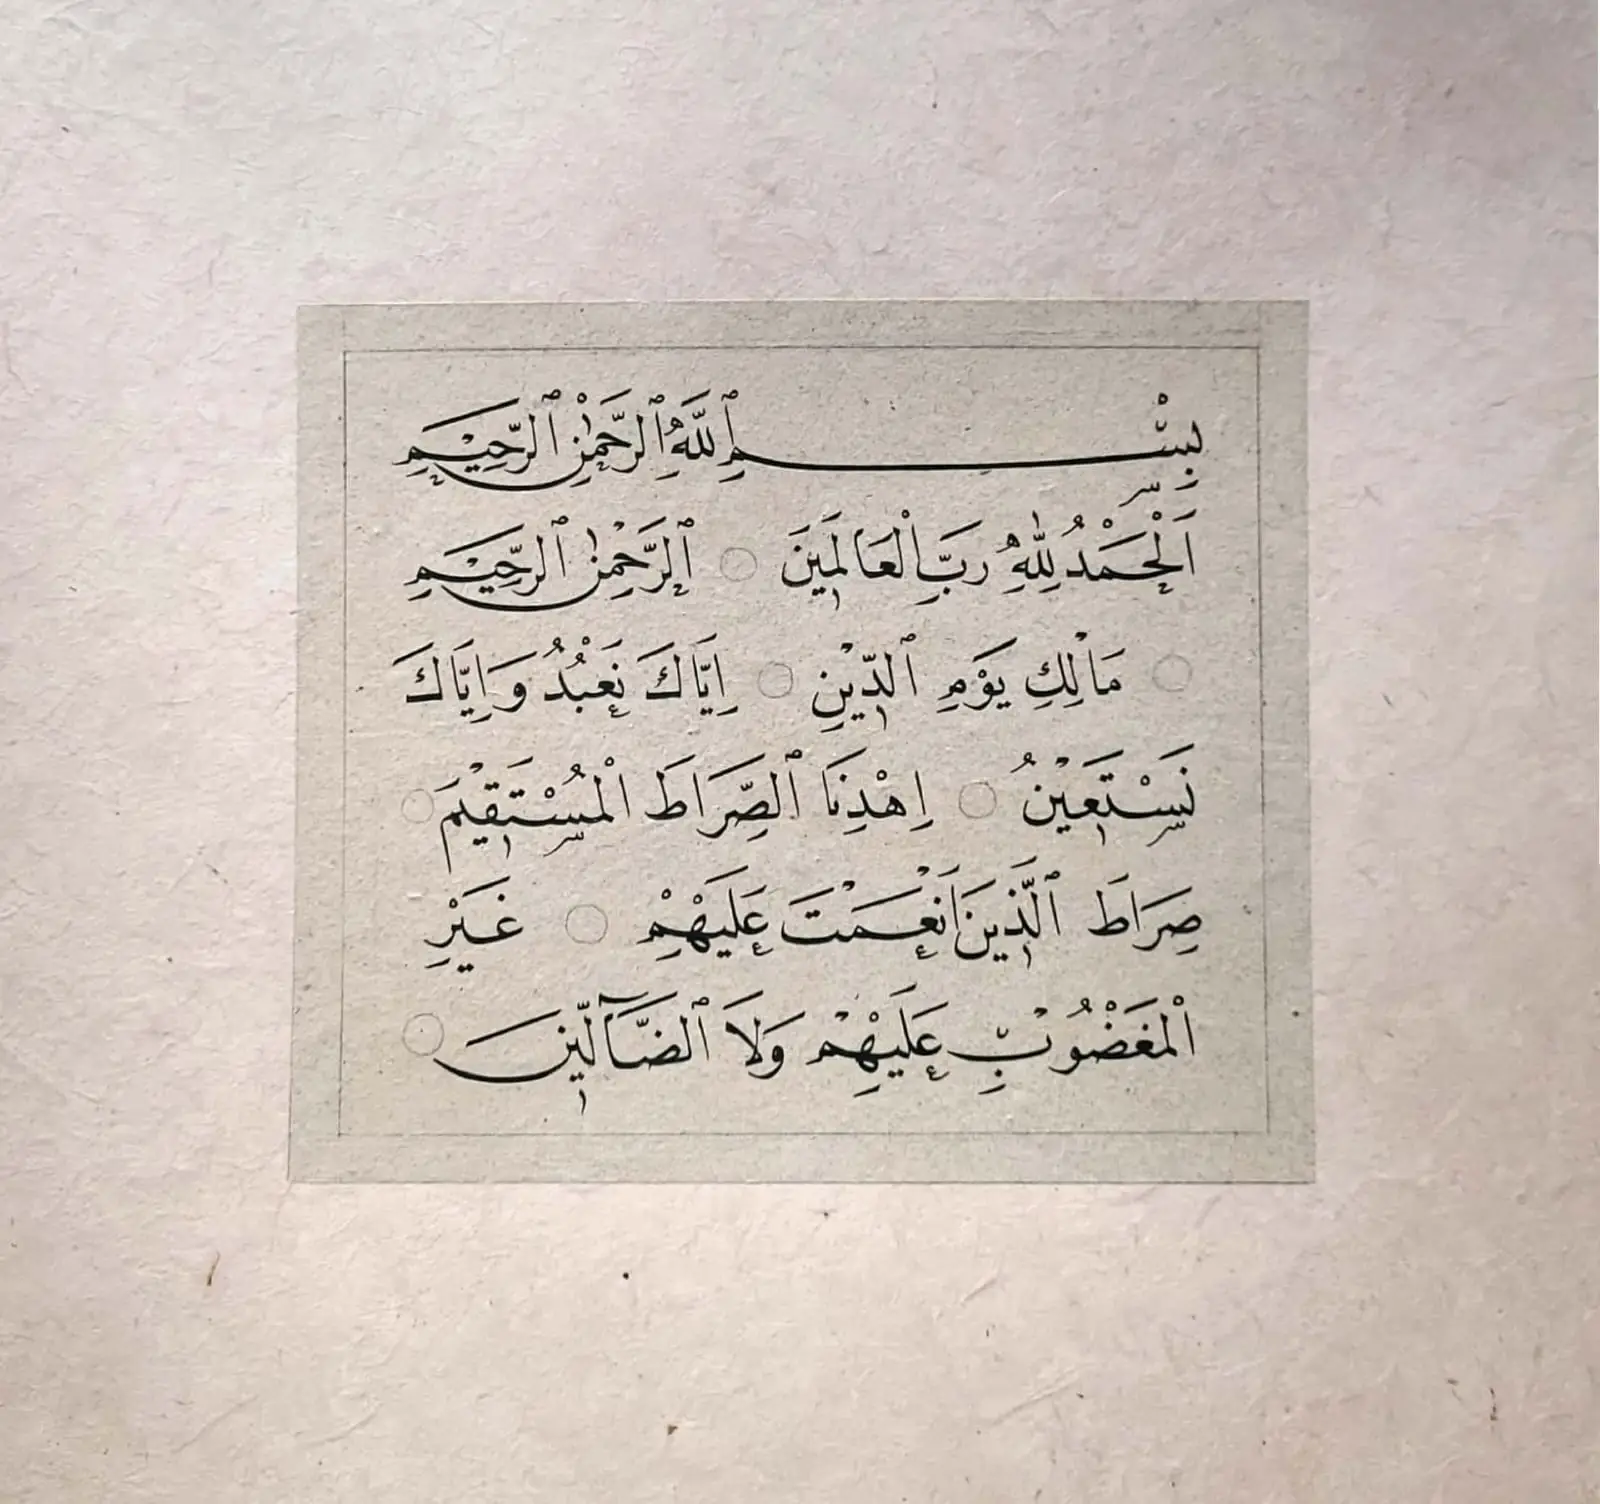 بِسْمِ ٱللَّهِ ٱلرَّحْمٰنِ ٱلرَّحِيْمِ
اَلْحَمْدُ لِلّٰهِ رَبِّ الْعَالَمِينَ ٱلرَّحْمٰنِ ٱلرَّحِيْمِ
مَالِكِ يَوْمِ ٱلدِّيْنِ اِيَّاكَ نَعْبُدُ وَاِيَّاكَ
نَسْتَعِيْنُ اِهْدِنَا ٱلصِّرَاطَ الْمُسْتَقِيْمَ
صِرَاطَ ٱلَّذِينَ اَنْعَمْتَ عَلَيْهِمْ غَيْرِ
الْمَغْضُوْبِ عَلَيْهِمْ وَلَا ٱلضَّآلِّينَ